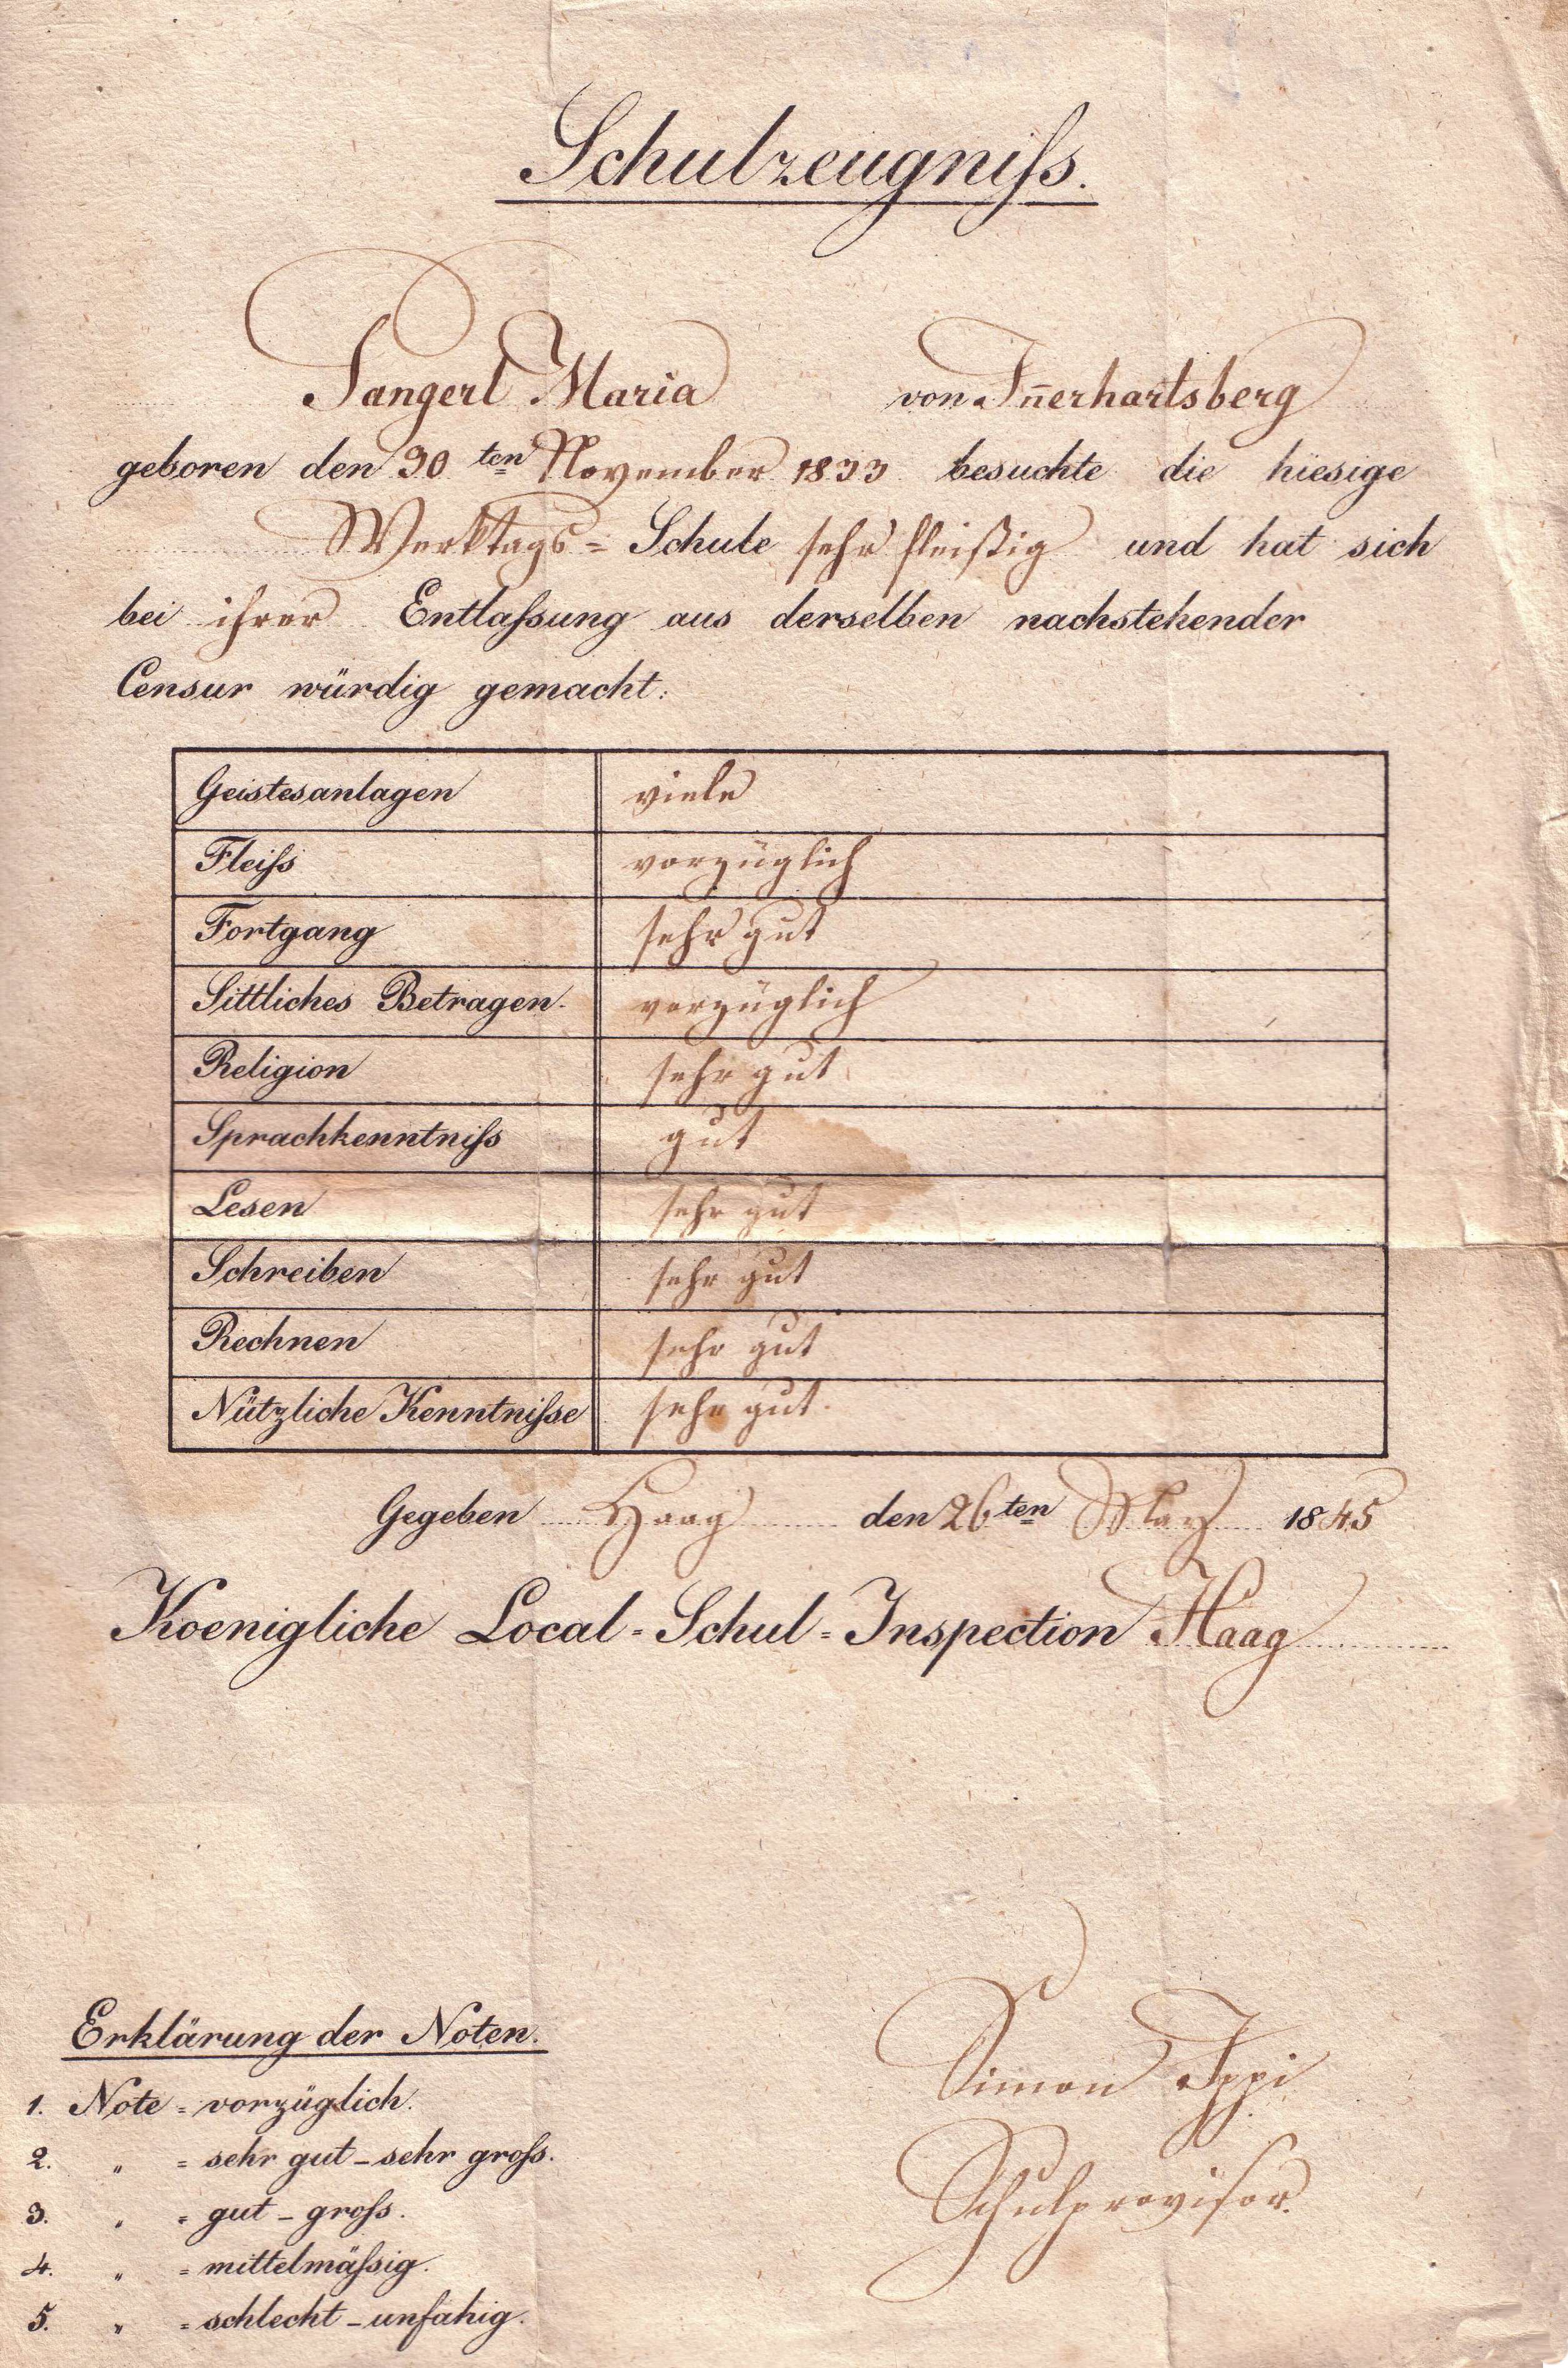 Schulzeugniſs.
Sangerl Maria von In̅erhartsberg
geboren den 30ten November 1833 besuchte die hiesige
Werktags= Schule sehr fleißig und hat sich
bei ihrer Entlaſsung aus derselben nachstehender
Censur würdig gemacht:
Geistesanlagen viele
Fleiſs vorzüglich
Fortgang sehr gut
Sittliches Betragen. vorzüglich
Religion sehr gut
Sprachkenntniſs gut
Lesen sehr gut
Schreiben sehr gut
Rechnen sehr gut
Nützliche Kenntniſse sehr gut.
Gegeben Haag den 26ten May 1845
Koenigliche Local=Schul=Inspection Haag
Simon
Schulprovisor.
Erklärung der Noten.
1. Note = vorzüglich.
2. " = sehr gut – sehr groſs.
3. " = gut – groſs.
4. " = mittelmäſsig.
5. " = schlecht – unfähig.